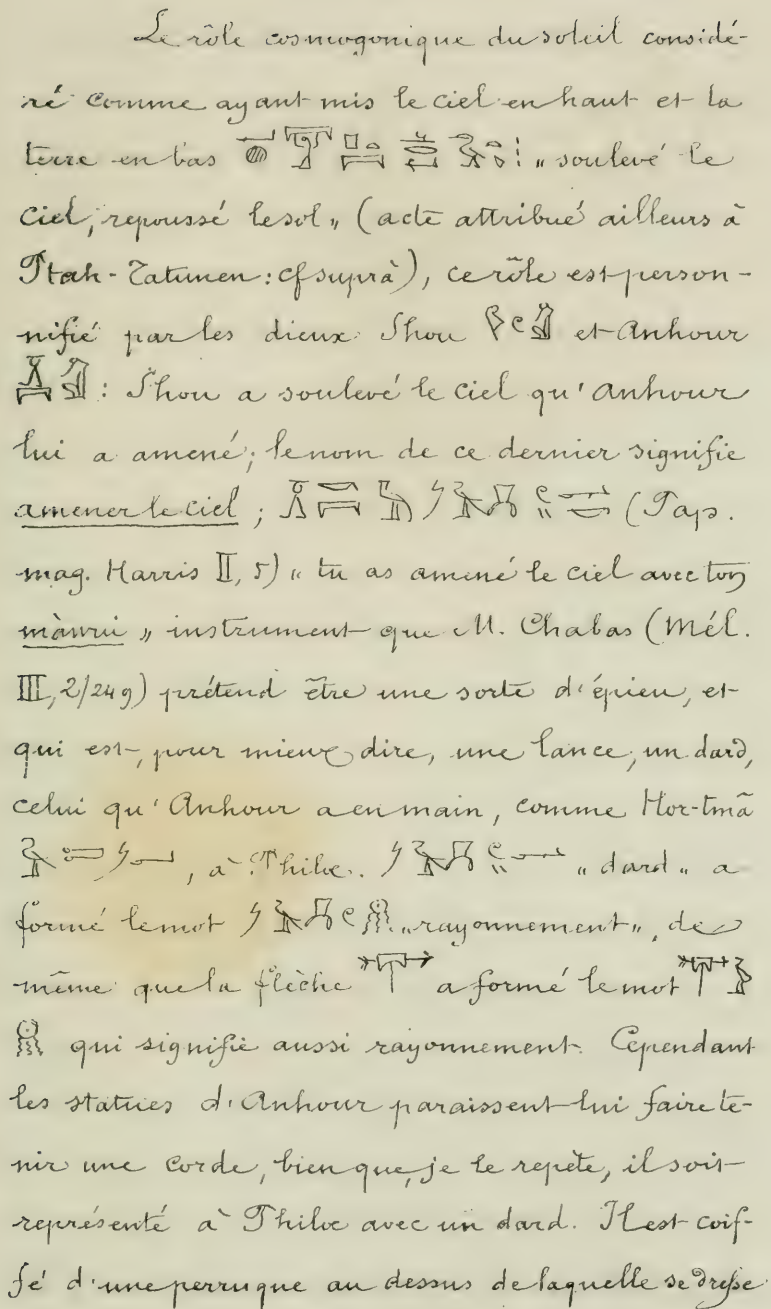 Le rôle cosmogonique du soleil considé-
ré comme ayant mis le ciel en haut et la
terre en bas „ soulevé le
ciel, repoussé le sol „ (acte attribué ailleurs à
Ptah-Tatunen : cf suprà), ce rôle est person-
nifié par les dieux Shou et Anhour
: Shou a soulevé le ciel qu'Anhour
lui a amené; le nom de ce dernier signifie
amener le ciel ; (Pap.
mag. Harris II, 5) „ tu as amené le ciel avec ton
màwui „ instrument que M. Chabas (Mél.
III, 2/249) prétend être une sorte d'épieu, et
qui est, pour mieux dire, une lance, un dard,
celui qu'Anhour a en main, comme Hor-tmā
, à Philœ. „ dard „ a
formé le mot „ rayonnement „, de
même que la flèche a formé le mot
qui signifie aussi rayonnement. Cependant
les statues d'Anhour paraissent lui faire te-
nir une corde, bien que, je le repète, il soit
représenté à Philœ avec un dard. Il est coif-
fé d'une perruque au dessus de laquelle se dresse